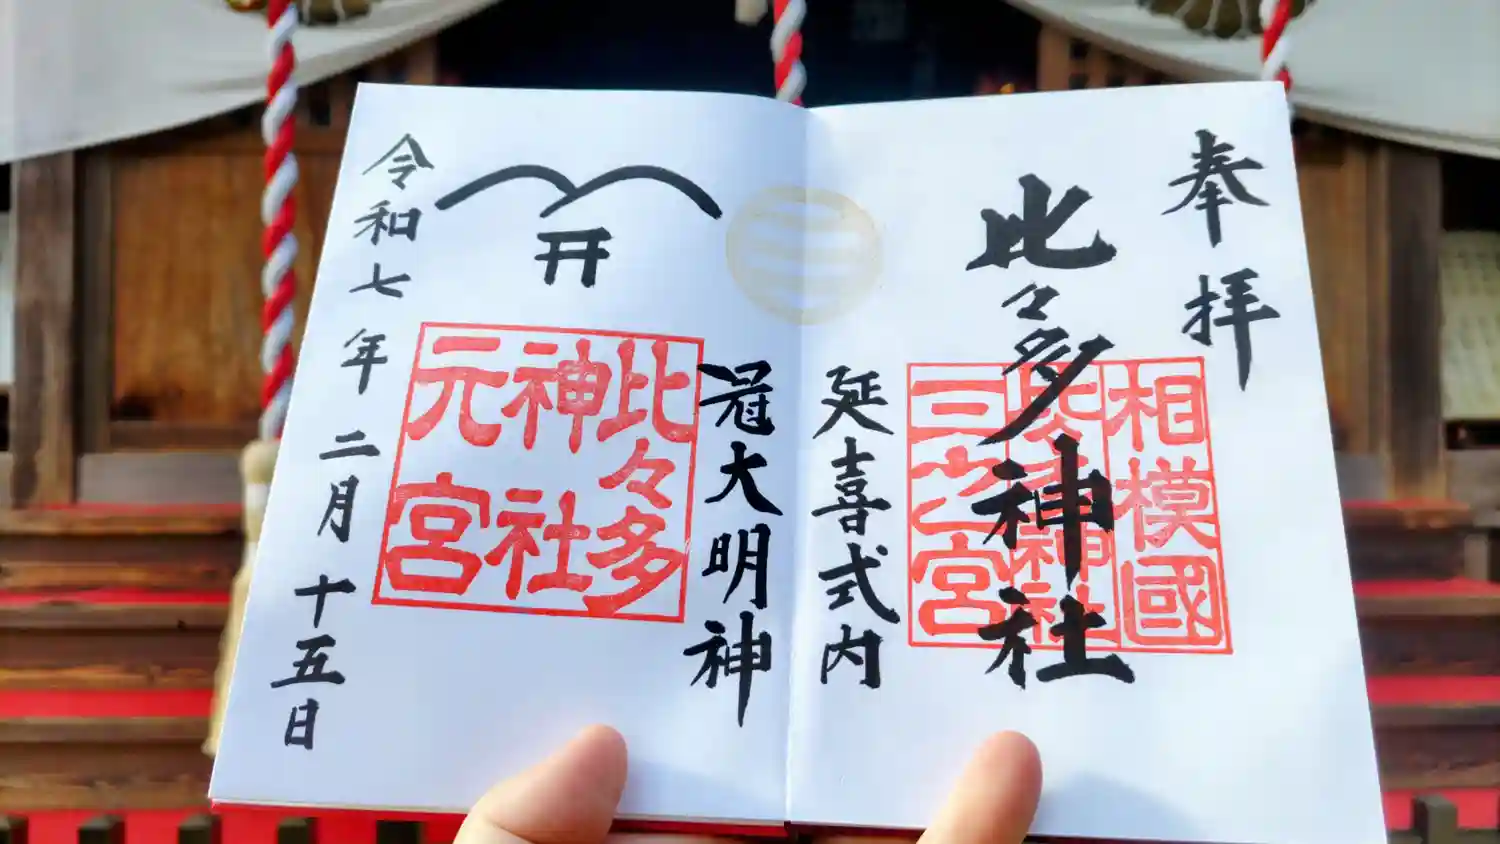 奉拝
相模國
比々多神社
比々多神社
三之宮
延喜式内
冠大明神
比々多
神社
元宮
令和七年二月十五日